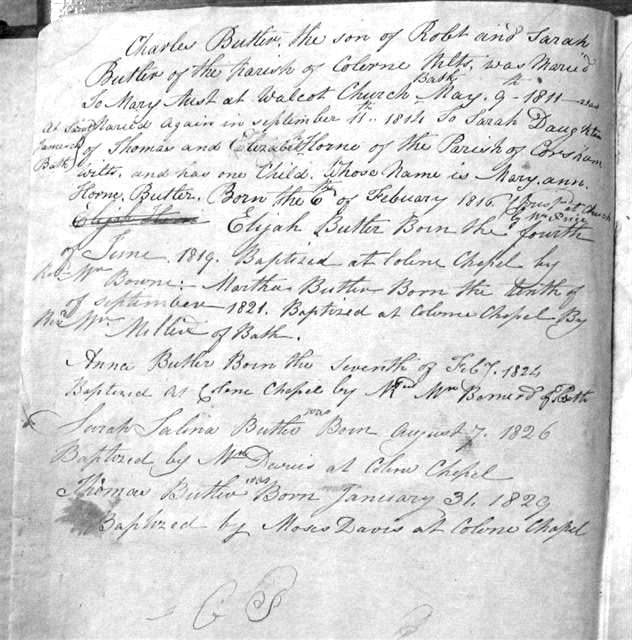 Charles Butler, the son of Robt and Sarah
Butler of the Parish of Colerne Wilts, was Maried
To Mary Aust at Walcot Church Bath May. 9th - 1811 - was
At Saint James's Bath Maried again in september 11th. 1814 To Sarah Daughter
of Thomas and Elizabeth Horne of the Parish of Corsham
wilts, and has one Child. Whose Name is Mary. ann.
Horne, Butler. Born the 6th of Febuary 1816. at Church by Mr Price
Elijah Horne Elijah Butler Born the fourth
of June. 1819. Baptized at Colerne Chapel by
Revd Mr Bowne: Martha Butler Born the tenth of
of september 1821. Baptized at Colerne Chapel By
Revd Mr. of Bath.
Anna Butler Born the Seventh of Feby. 1824
Baptized At Colerne Chapel by Mr of Bath
Sarah Salina Butler was Born August 7. 1826
Baptized by Mr Davis at Colerne Chapel
Thomas Butler was Born January 31. 1829
Baptized by Moses Davis at Colerne Chapel
C S